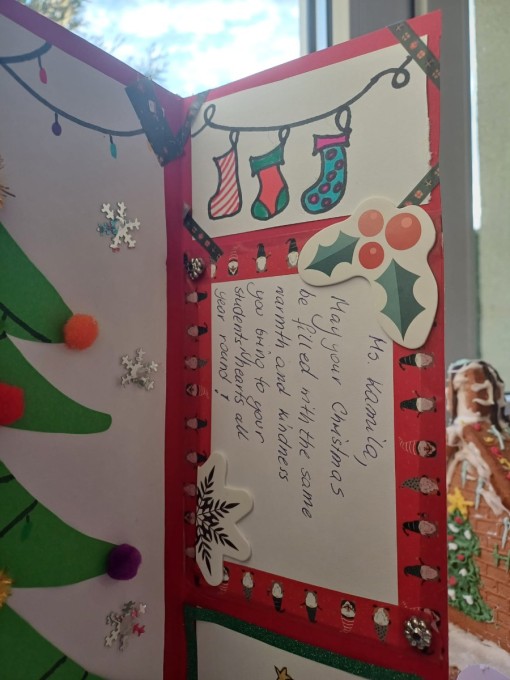 Ms Kamila,
May your Christmas
be filled with the same
warmth and kindness
you bring to your
students' hearts all
year round!